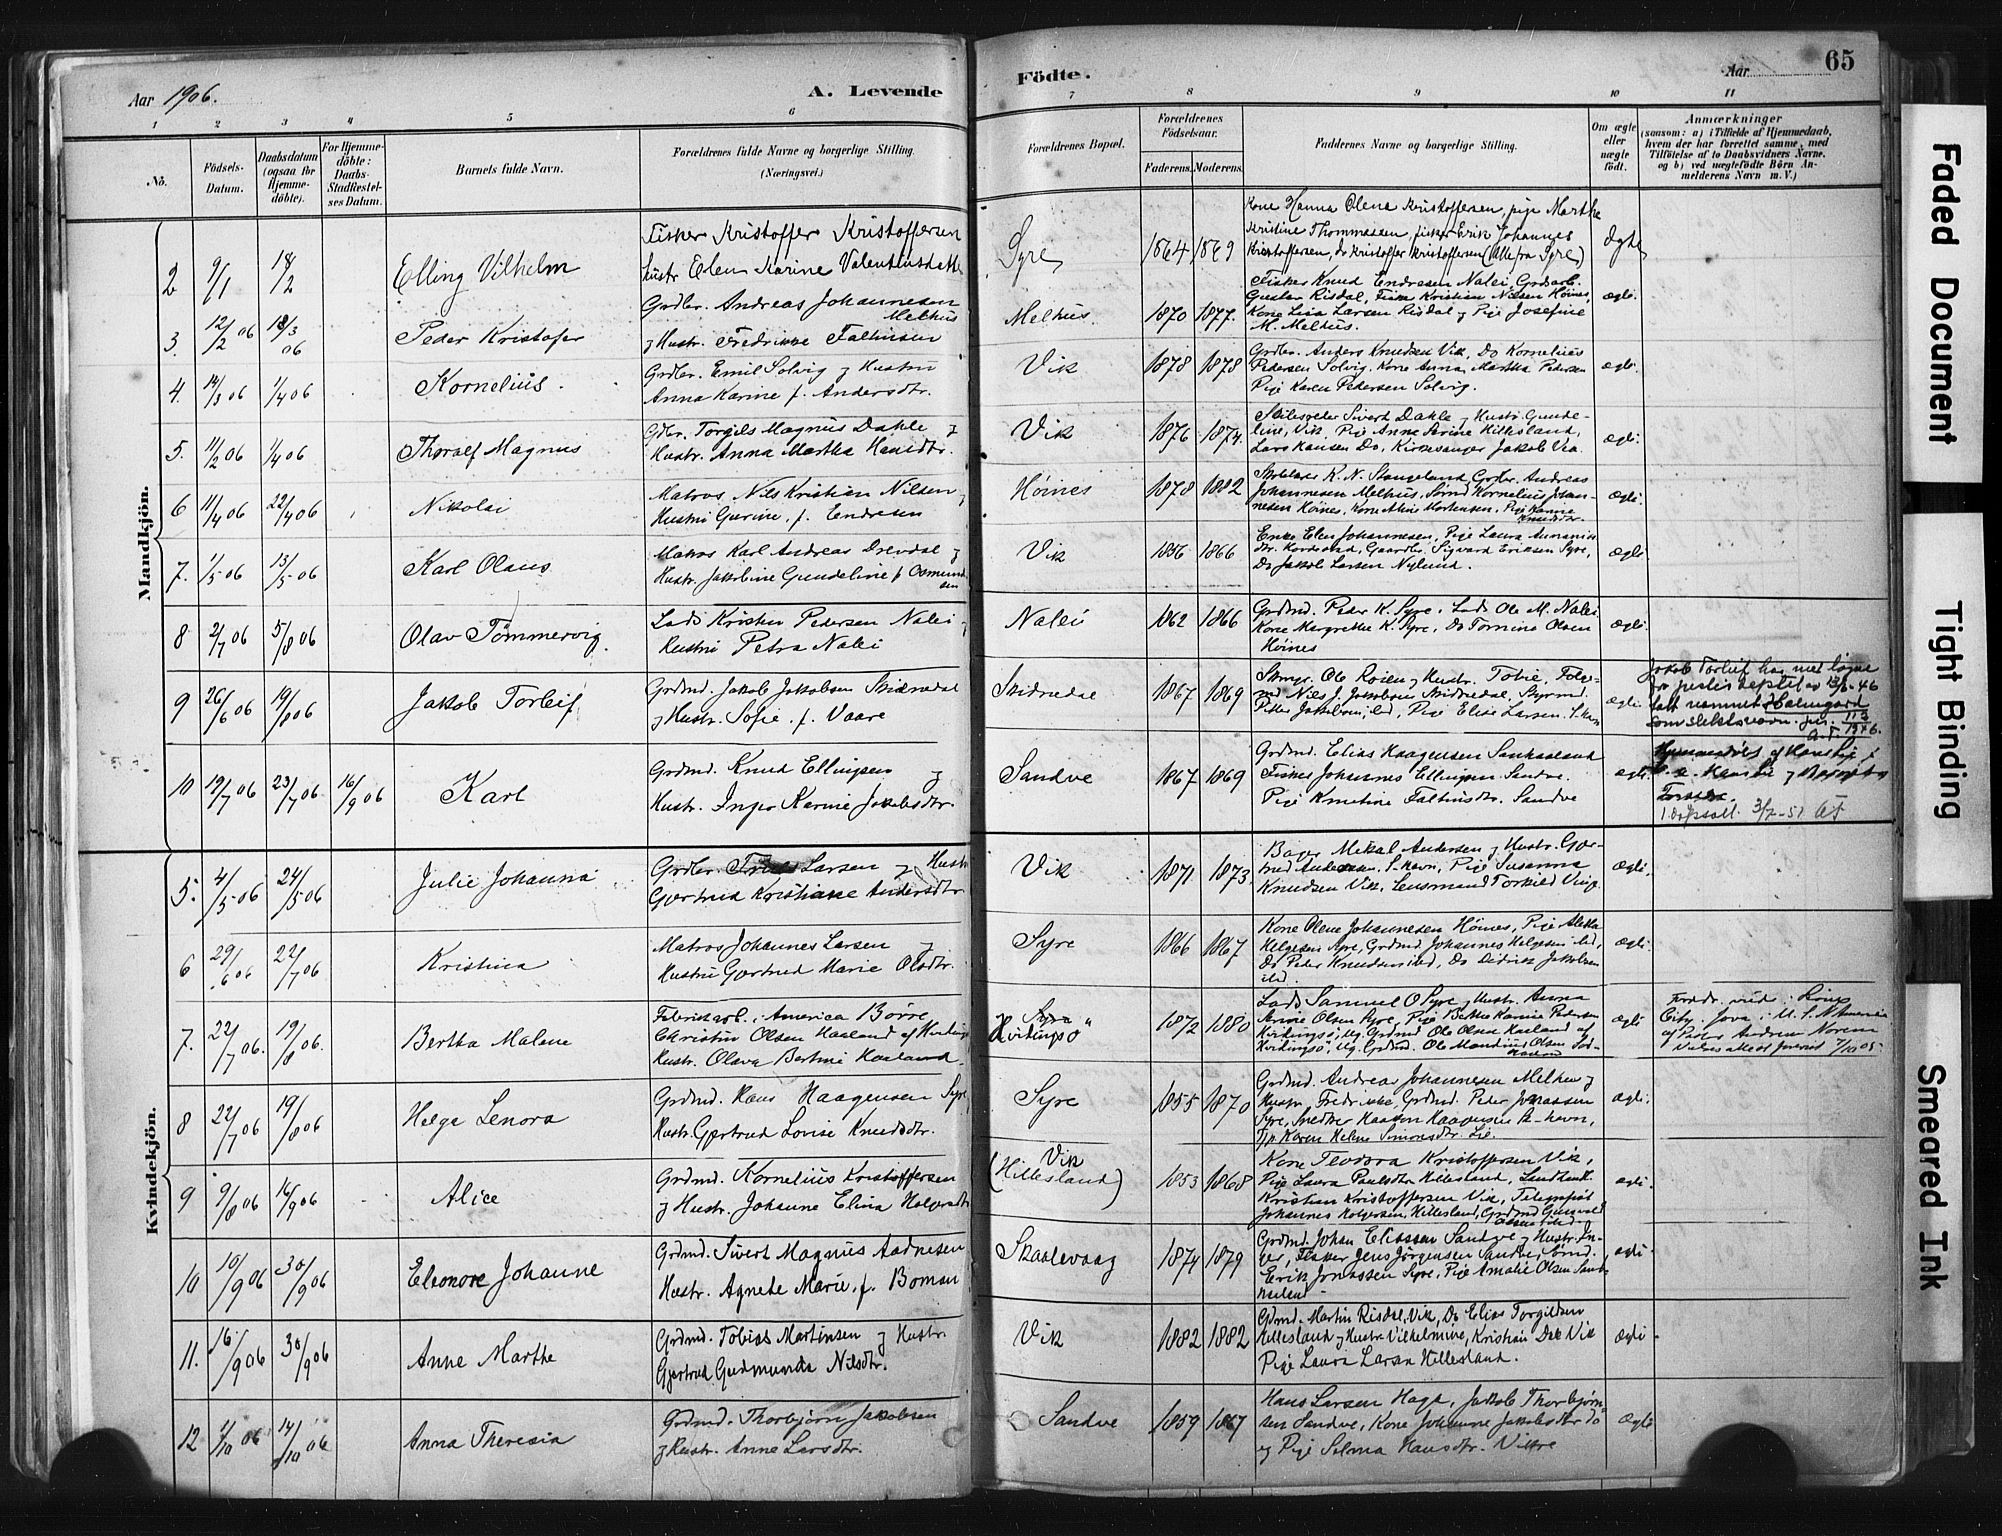 Aar 1906.
A. Levende
Födte.
Aar
65
1 2 3 4 5 6 7 8 9 10 11
No.
Födsels-Datum.
Daabsdatum (ogsaa for Hjemme-döbte).
For Hjemme-döbte: Daabs-Stadfæstel-ses Datum.
Barnets fulde Navn.
Forældrenes fulde Navne og borgerlige Stilling.
(Næringsvei.)
Forældrenes Bopæl.
Forældrenes Födselsaar.
Faderens. Moderens.
Faddernes Navne og borgerlige Stilling.
Om ægte eller uægte födt.
Anmærkninger
(saasom: a) i Tilfælde af Hjemmedaab,
hvem der har forrettet samme, med
Tilföielse af to Daabsvidners Navne,
og b) ved uægtefödte Börn An-
melderens Navn m. V.)
Mandkjön.
2 9/1 18/2 Elling Vilhelm
Fisker Kristoffer Kristoffersen
Hustr Elen Karine Valentinsdatte
Syre 1864 1869
Kone Hanna Olena Kristoffersen, pige Marthe
Kristine Thommasen, fisker Erik Johannes
Kristoffersen, do Kristoffer Kristoffersen (Alle fra Syre)
Ægte
3. 12/2 06 18/3 06 Peder Kristofer
Grdbr. Andreas Johannesen
Melhus
og Hustr. Fredrikke Faltinsen
Melhus. 1870 1877.
Fisker Knud Endresen Nalei, Grdarb.
Gustav Risdal, Fisker Kristian Nilsen Höines,
Kone Lina Larsen Risdal og Pige Josefine
M. Melhus.
ægte.
4. 14/3 06 1/4 06 Kornelius.
Grdbr. Emil Solvig og Hustru
Anna Karine f. Andersdtr.
Vik 1878 1878
Grdbr. Anders Knudsen Vik, Do Kornelius
Pedersen Solvig. Kone Anna Martha Pedersen
Pige Karen Pedersen Solvig.
ægte.
5. 11/2 06 1/4 06 Thoralf Magnus
Gdbr. Torgils Magnus Dahle og
Hustr. Anna Martha Hansdtr.
Vik 1876 1874.
Sivert Dahle og Hustr. Gunde-
line, Vik, Pige Anne Serine Hillesland,
Lars Hansen Do, Kirkesanger Jakob Vea.
ægte.
6 11/4 06 22/4 06 Nikolai
Matros Nils Kristian Nilsen og
Hustru Gurine, f. Endresen
Höines 1878 1882
K. N. Stangeland, Grdbr. Andreas
Johannesen Melhus, Sömd Kornelius Johan-
nesen Höines, Kone Aline Mortensen, Pige Hanne
Knudsdtr.
ægte.
7. 1/5 06 13/5 06 Karl Olaus
Matros Karl Andreas Drevdal og
Hustr. Jakobine Gundeline f. Osmund
sen
Vik 1856 1866
Enke Elen Johannesen, Pige Laura Annanias
dtr. Kordestad, Gaardbr. Sigvard Eriksen Syre,
Do Jakob Larsen Nylund.
ægte.
8 2/7 06 5/8 06 Olav Tömmervig.
Lods Kristen Pedersen Nalei og
Hustru Petra Nalei
Nalei 1862 1866
Grdmd. Peder K. Syre, Lods Ole M. Nalei
Kone Margrethe K. Syre, Do Tomine Olsen
Höines
ægte.
9 26/6 06 19/8 06 Jakob Torleif
Grdmd. Jakob Jakobsen Skidnedal
og Hustr. Sofie. f. Vaare
Skidnedal 1867 1869
Ole Röien og Hustr. Tobie,
Nils J. Jakobsen Skidnedal, Styrmd.
Peder Jakobsen, ibd, Pige Elise Larsen, S.havn
ægte.
Jakob Torleif har med løyve
fra justisdeptet av 13/2-46
tatt namnet Palmgard
som slektsnavn.
10 19/7 06 23/7 06 16/9 06 Karl
Grdmd. Knud Ellingsen og
Hustr. Inger Karine Jakobsdtr.
Sandve 1867 1869
Grdmd. Elias Haagensen Sandvesand
Fisker Johannes Ellingsen Sandve.
Pige Knutine Faltinsdtr. Sandve
ægte.
Hjemmedöbt af
Dåpsatt. 3/7-51
Kvindekjön.
5. 4/5 06 24/5 06 Julie Johanna
Grdbr. Larsen og Hustr
Gjertrud Kristianne Andersdtr
Vik 1871 1873.
Bager Mikal Andersen og Hustr. Gjer-
trud Andersen. S.havn, Pige Susanna
Knudsen Vik, Lensmand Torkild Vinje
ægte.
6 29/6 06 22/7 06 Kristina
Matros Johannes Larsen og
Hustru Gjertrud Marie Olsdtr.
Syre 1866 1867
Kone Olene Johannesen Höines, Pige Aletha
Helgesen Syre, Grdmd Johannes Helgesen ibd,
Do Peder Knudsen ibd, Do Didrik Jakobsen
ibd.
ægte.
7. 22/7 06. 19/8 06. Bertha Malene
Fabrikarb. i Amerika Börre
Christin Olsen Haaland af Hvidings
Hustr. Olava Bertine Haaland
Syre
Hvitingsö 1872 1880
Lods Samuel O Syre og Hustr. Anna
Serine Olsen Syre, Pige Berthe Karine Pedersen
Hvitingsö, Ug. Grdmd. Ole Olsen Haaland af
Hvitingsö, Ug. Grdmd. Ole Mandius Olsen
ægte
Forældr. viede i
City. Jova i U.S. N America
af Pastor Andrew Norem
7/10 05.
8 22/7 06 19/8 06 Helga Lenora
Grdmd. Hans Haagensen Syre,
Hustr. Gjertrud Lovise Knudsdtr.
Syre 1855 1870
Grdmd. Andreas Johannesen Melhus og
Hustr. Fredrikke, Grdmd. Peder Jonassen
Syre, Snedker Haagen Haagensen S.havn,
Tjp Karen Helene Simonsdtr. Lie.
ægte.
9 9/8 06 16/9 06 Alice
Grdmd. Kornelius Kristoffersen
og Hustr. Johanne Elina Holgersdtr
Vik
(Hillesland) 1853 1868
Kone Teodora Kristoffersen Vik,
Pige Laura Paulsdtr Hillesland, Landhandl.
Kristian Kristoffersen Vik, Telegrafist
Johannes Holgersen Hillesland, Grdmd Gunvald
Olsen ibd
ægte.
10 10/9 06 30/9 06 Eleonore Johanne
Grdmd. Sivert Magnus Aadnesen
Hustr. Agnete Marie, f. Boman
Skaalevaag 1874 1879
Grdmd. Johan Eliassen Sandve og Hustr. In-
ger, Fisker Jens Jörgensen Sandve, Sömd.
Erik Jonassen Syre, Pige Amalie Olsen
ægte.
11. 16/9 06 30/9 06 Anne Marthe
Grdmd. Tobias Martinsen og Hustr.
Gjertrud Gudmunda Nilsdtr.
Vik 1882 1882
Grdmd. Martin Risdal, Vik, Do Elias Torgildsen
Hillesland og Hustr Vilhelmine, Kristian Dale Vik
Pige Laura Larsen Hillesland.
ægte.
12 1/10 06 14/10 06 Anna Theresia
Grdmd. Thorbjörn Jakobsen
og Hustr. Anne Larsdtr.
Sandve 1859 1867
Hans Larsen Haga, Jakob Thorbjörn-
sen Sandve, Kone Johanne Jakobsdtr do
og Pige Selma Hansdtr. Viltre
Ægte
Faded Document
Tight Binding
Smeared Ink